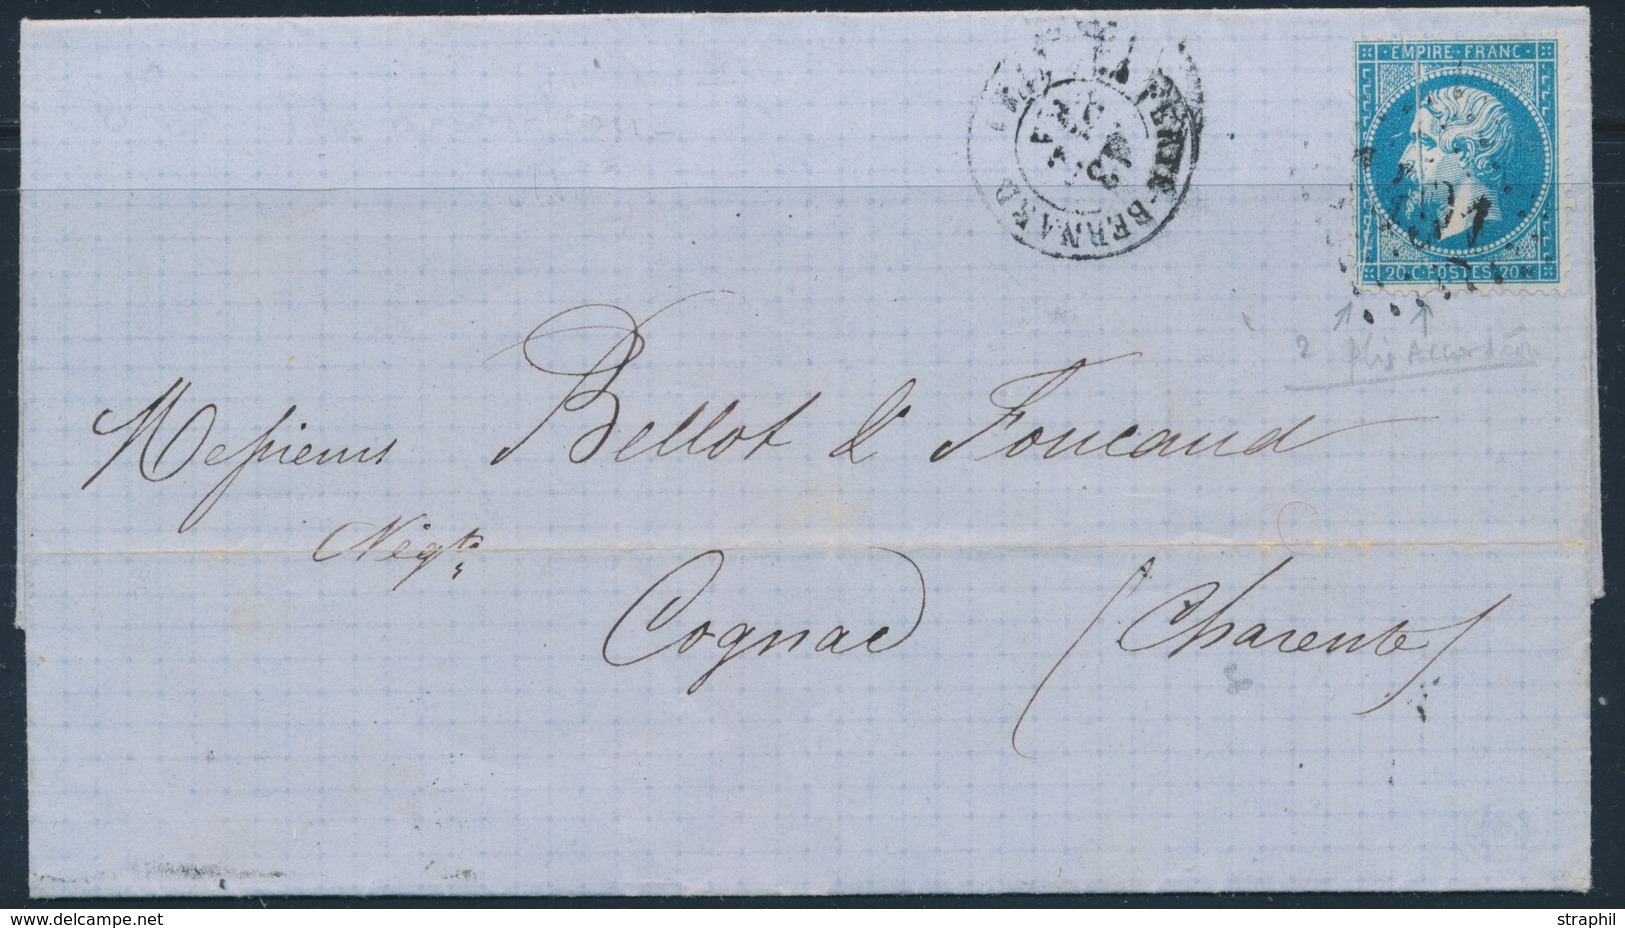 EMPIRE · FRANC ·
20 C · POSTES · 20
LA FERTÉ-BERNARD
2 plis Accordéon
Messieurs Bellot & Foucaud
Négts
Cognac (Charente)
www.delcampe.net
straphil